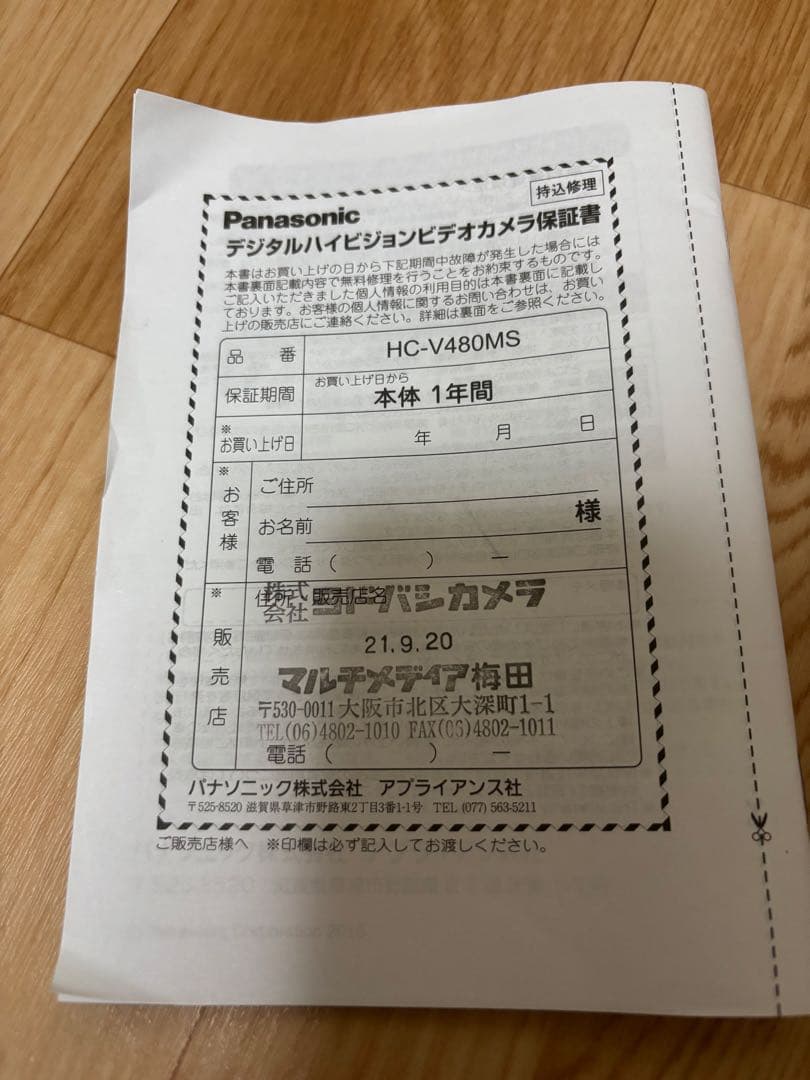 持込修理
Panasonic
デジタルハイビジョンビデオカメラ保証書
本書はお買い上げの日から下記期間中故障が発生した場合には
本書裏面記載内容で無料修理を行うことをお約束するものです。
ご記入いただきました個人情報の利用目的は本書裏面に記載し
ております。お客様の個人情報に関するお問い合わせは、お買い
上げの販売店にご連絡ください。詳細は裏面をご参照ください。
品 番 HC-V480MS
保証期間 お買い上げ日から 本体 1年間
※お買い上げ日 年 月 日
※お客様
ご住所
お名前 様
電 話 ( ) ー
※販売店
住所・販売店名
株式会社 ヨドバシカメラ
21.9.20
マルチメディア梅田
〒530-0011 大阪市北区大深町1-1
TEL(06)4802-1010 FAX(06)4802-1011
電話 ( ) ー
パナソニック株式会社 アプライアンス社
〒525-8520 滋賀県草津市野路東2丁目3番1-1号 TEL (077) 563-5211
ご販売店様へ ※印欄は必ず記入してお渡しください。